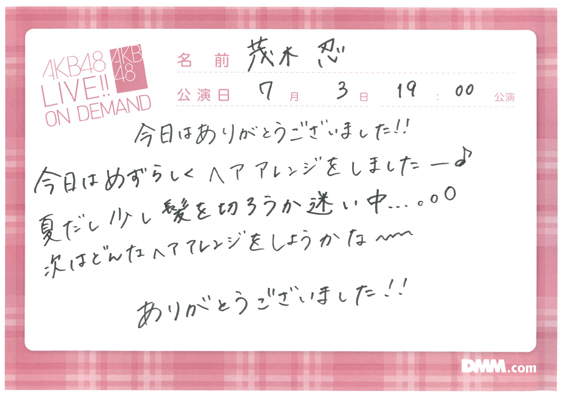 AKB48
LIVE!!
ON DEMAND
AKB
48
名前 茂木 忍
公演日 7月 3日 19:00 公演
今日はありがとうございました!!
今日はめずらしくヘアアレンジをしましたー♪
夏だし少し髪を切ろうか迷い中...。○○
次はどんなヘアアレンジをしようかな〜
ありがとうございました!!
DMM.com